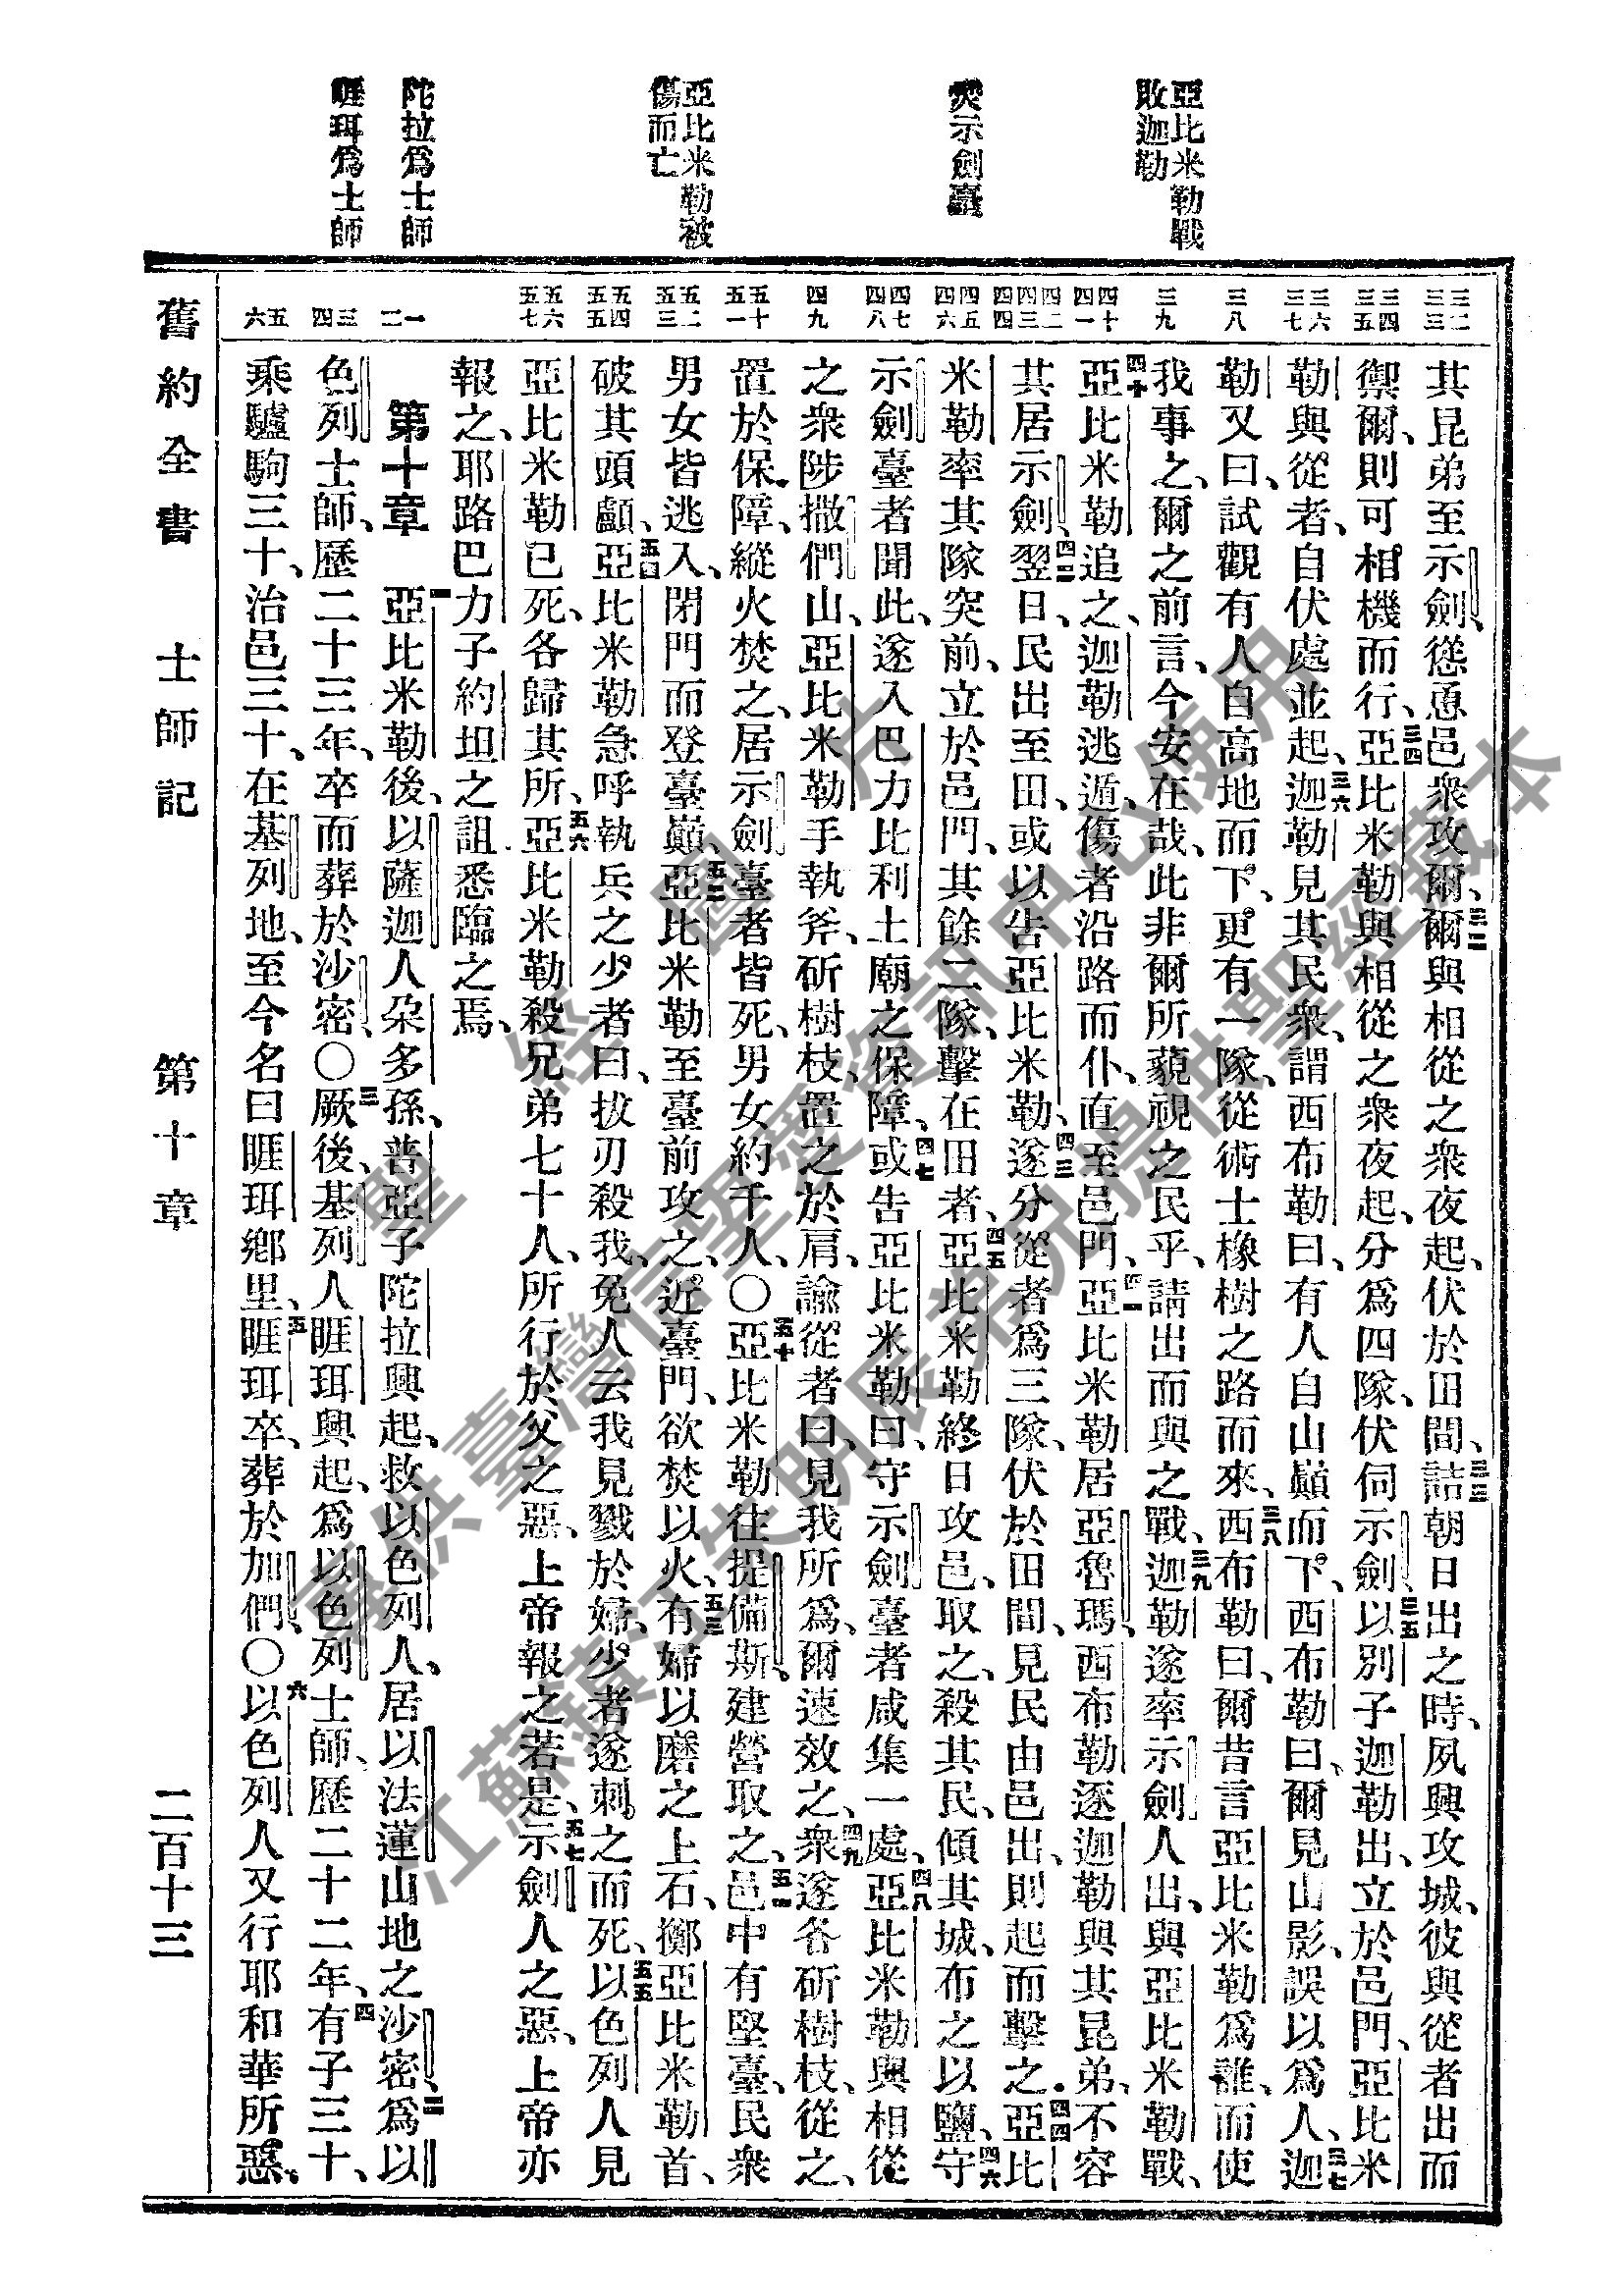 亞比米勒戰
敗迦勒
焚示劍臺
亞比米勒被
傷而亡
陀拉爲士師
睚珥爲士師
三二 三三
三四 三五
三六 三七
三八
三九
四十 四一
四二 四三 四四
四五 四六
四七 四八
四九
五十 五一
五二 五三
五四 五五
五六 五七
一 二
三 四
五 六
其昆弟至示劍、慫恿邑衆攻爾、三二爾與相從之衆夜起、伏於田間、三三詰朝日出之時、夙興攻城、彼與從者出而
禦爾、則可相機而行、三四亞比米勒與相從之衆夜起、分爲四隊、伏伺示劍、三五以別子迦勒出、立於邑門、亞比米
勒與從者、自伏處並起、三六迦勒見其民衆、謂西布勒曰、有人自山巔而下、西布勒曰、爾見山影、誤以爲人、三七迦
勒又曰、試觀有人自高地而下、更有一隊、從術士橡樹之路而來、三八西布勒曰、爾昔言亞比米勒爲誰、而使
我事之、爾之前言、今安在哉、此非爾所藐視之民乎、請出而與之戰、三九迦勒遂率示劍人出、與亞比米勒戰、
四十亞比米勒追之、迦勒逃遁、傷者沿路而仆、直至邑門、四一亞比米勒居亞魯瑪、西布勒逐迦勒與其昆弟、不容
其居示劍、四二翌日、民出至田、或以告亞比米勒、四三遂分從者爲三隊、伏於田間、見民由邑出、則起而擊之、四四亞比
米勒率其隊突前、立於邑門、其餘二隊、擊在田者、四五亞比米勒終日攻邑、取之、殺其民、傾其城、布之以鹽、四六守
示劍臺者聞此、遂入巴力比利土廟之保障、四七或告亞比米勒曰、守示劍臺者咸集一處、四八亞比米勒與相從
之衆陟撒們山、亞比米勒手執斧、斫樹枝、置之於肩、諭從者曰、見我所爲、爾速效之、四九衆遂各斫樹枝、從之、
置於保障、縱火焚之、居示劍臺者皆死、男女約千人、〇五十亞比米勒往提備斯、建營取之、五一邑中有堅臺、民衆
男女皆逃入、閉門而登臺巔、五二亞比米勒至臺前攻之、近臺門、欲焚以火、五三有婦以磨之上石、擲亞比米勒首、
破其頭顱、五四亞比米勒急呼執兵之少者曰、拔刃殺我、免人云我見戮於婦、少者遂刺之而死、五五以色列人見
亞比米勒已死、各歸其所、五六亞比米勒殺兄弟七十人、所行於父之惡、上帝報之若是、五七示劍人之惡、上帝亦
報之、耶路巴力子約坦之詛悉臨之焉、
第十章 一亞比米勒後、以薩迦人朶多孫、普亞子陀拉興起、救以色列人、居以法蓮山地之沙密、二爲以
色列士師、歷二十三年、卒而葬於沙密、〇三厥後、基列人睚珥興起、爲以色列士師、歷二十二年、四有子三十、
乘驢駒三十、治邑三十、在基列地、至今名曰睚珥鄉里、五睚珥卒、葬於加們、〇六以色列人又行耶和華所惡、
舊約全書 士師記 第十章 二百十三
聖經圖片
謹供臺灣信望愛資訊中心使用
江蘇鎮江朱明辰弟兄提供聖經藏本